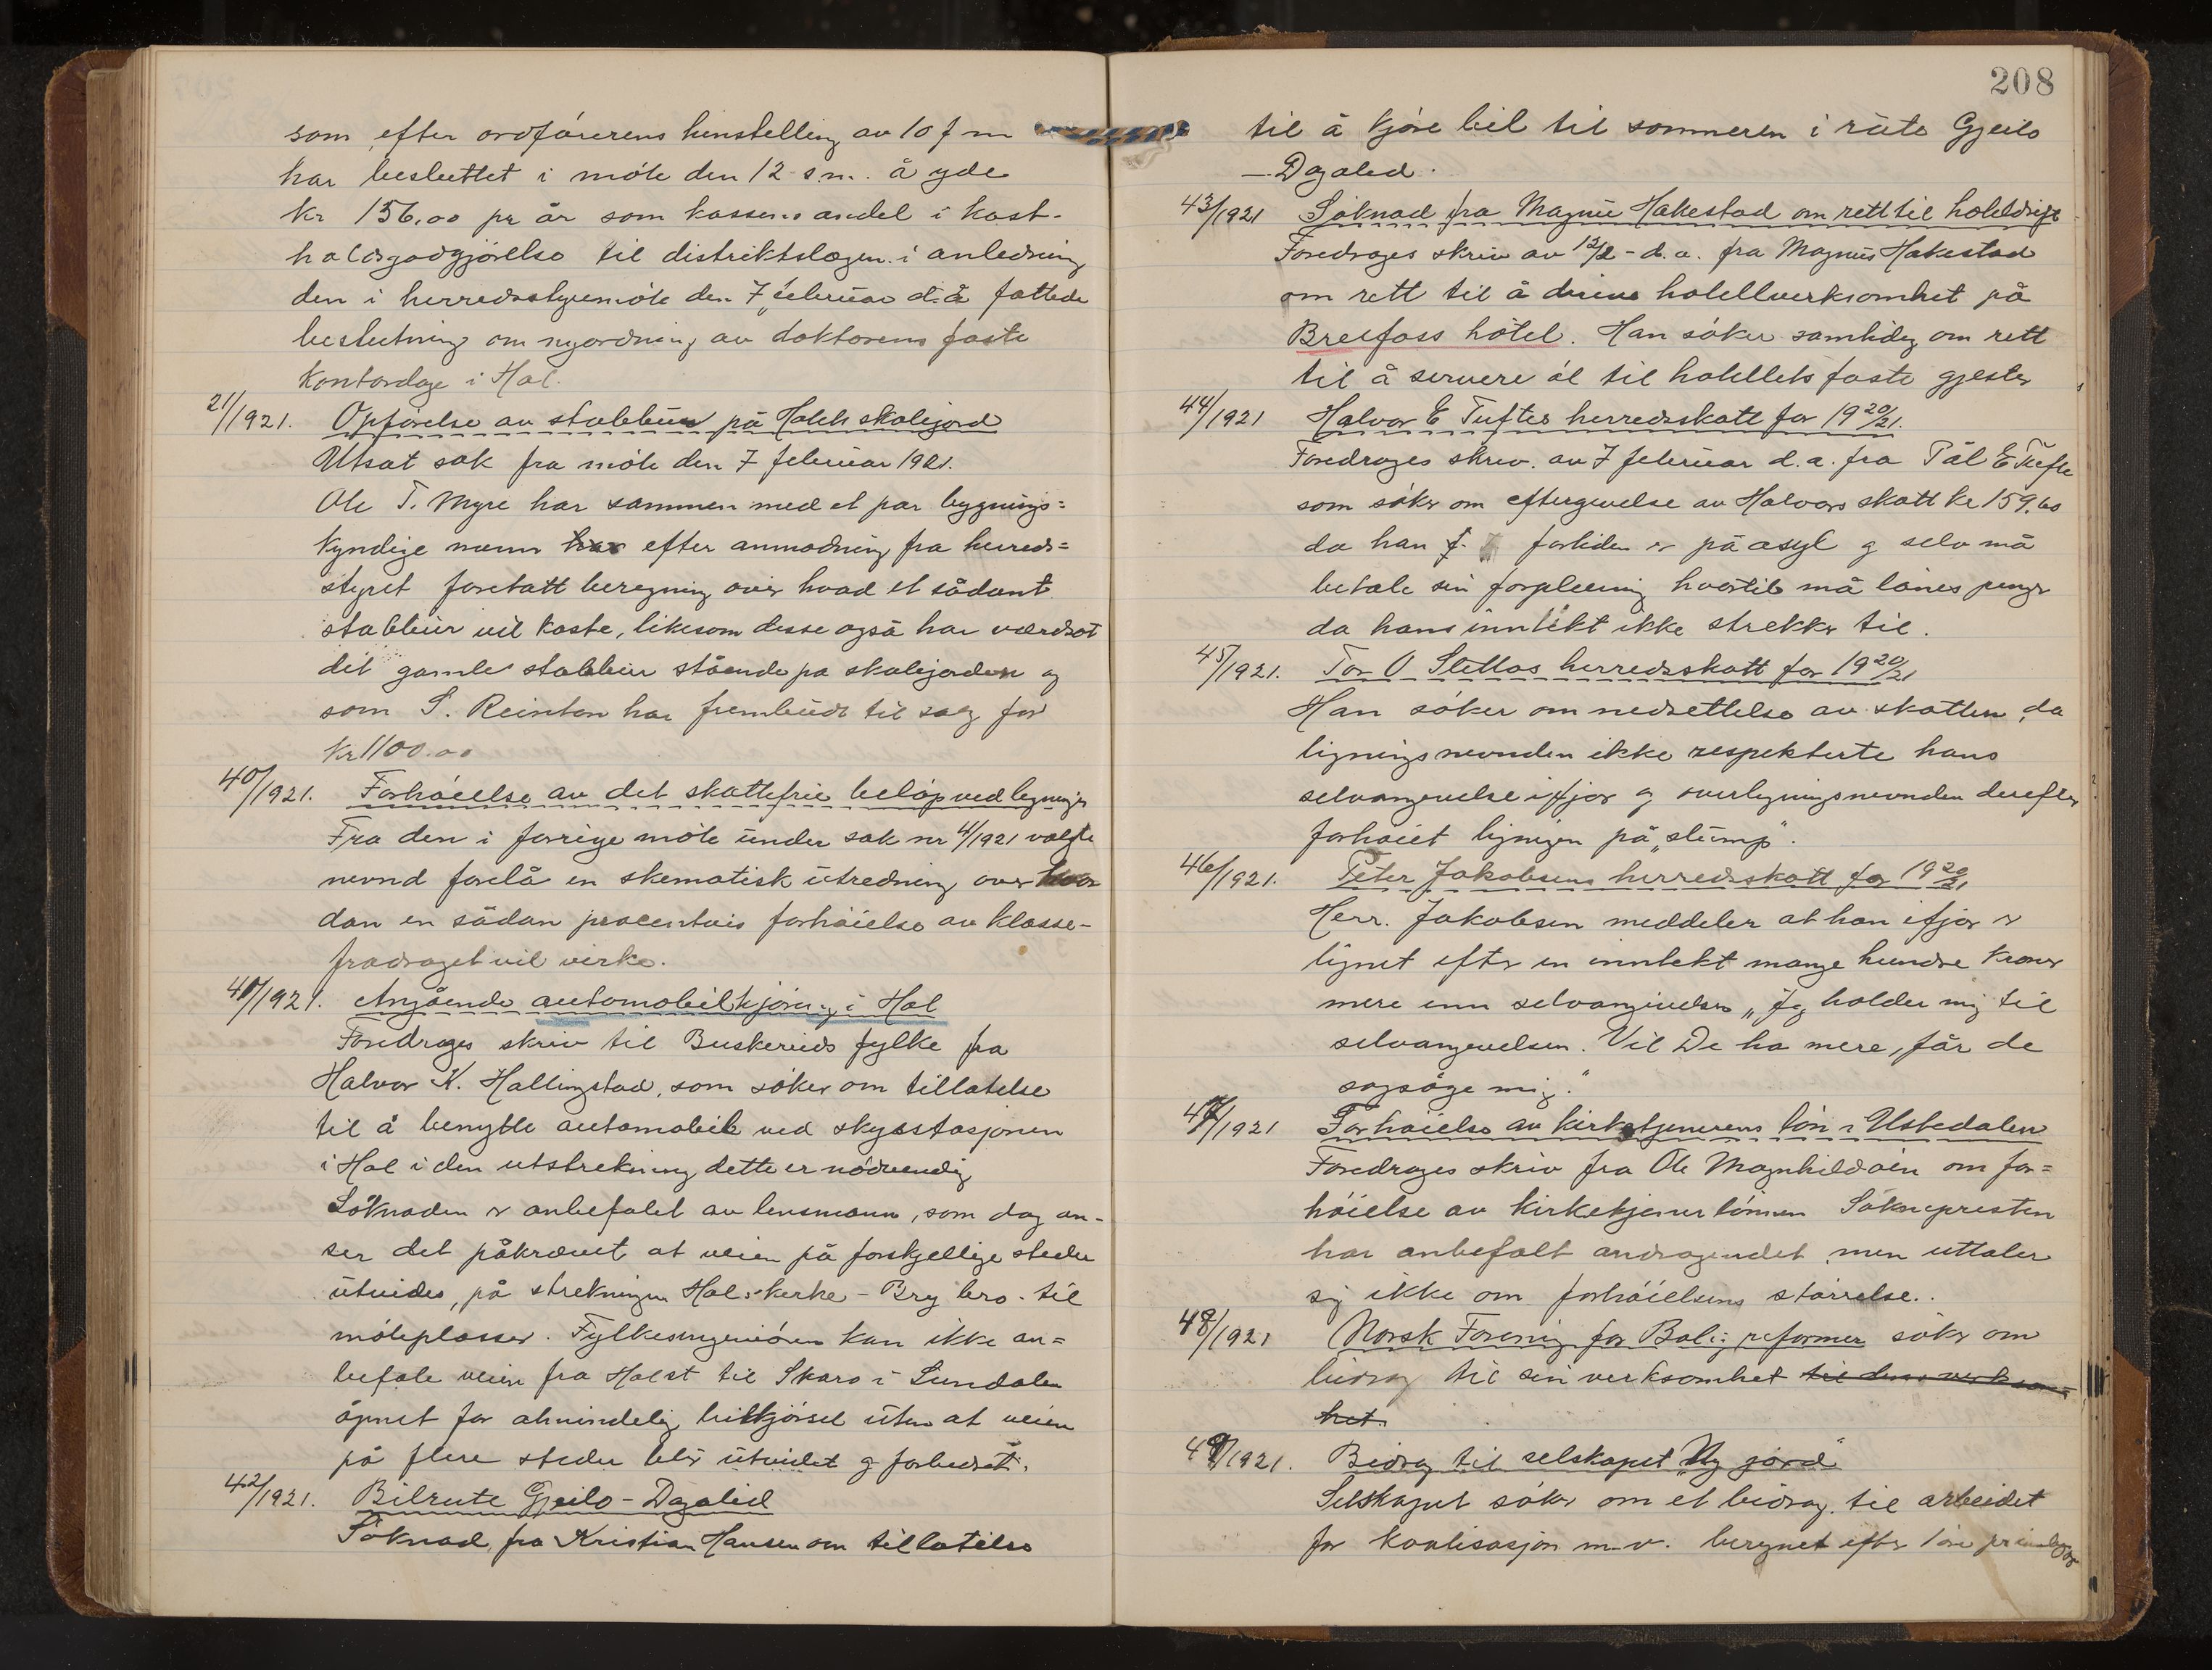 som efter ordførerens henstelling av 10 f m
har besluttet i møte den 12 s.m. å yde
kr 156,00 pr år som kassens andel i kost-
holdsgodgjørelse til distriktslægen i anledning
den i herredsstyremøte den 7 februar d.å fattede
beslutning om nyordning av doktorens faste
kontordage i Hol.
21/1921. Opførelse av stabbur på Holets skolejord
Utsat sak fra møte den 7 februar 1921.
Ole T. Myre har sammen med et par bygnings=
kyndige menn har efter anmodning fra herreds=
styret foretatt beregning over hvad et sådant
stabbur vil koste, likesom disse også har værdsat
det gamle stabbur stående på skolejorden og
som S. Reinton har frembudt til salg for
kr 1100.00
40/1921. Forhøielse av det skattefrie beløp ved ligninga
Fra den i forrige møte under sak nr 4/1921 valgte
nevnd forelå en skematisk utredning over hvor
dan en sådan procentvis forhøielse av klasse-
fradraget vil virke.
41/1921. Angående automobilkjøring i Hol
Foredrages skriv til Buskeruds fylke fra
Halvor K. Hallingstad, som søker om tillatelse
til å benytte automobil ved skysstasjonen
i Hol i den utstrekning dette er nødvendig
Søknaden er anbefalet av lensmann, som dog an-
ser det påkrævet at veien på forskjellige steder
utvides, på strekningen Hol kirke - Bry bro - til
møteplasser. Fylkesingeniøren kan ikke an=
befale veien fra Holet til Skaro i Sundalen
åpnet for almindelig bilkjørsel uten at veien
på flere steder blir utvidet og forbedret.
42/1921. Bilrute Gjeilo - Dagalid
Søknad fra Kristian Hansen om tillatelse
208
til å kjøre bil til sommeren i rute Gjeilo
- Dagalid.
43/1921 Søknad fra Magnus Hakestad om rett til hoteldrift
Foredrages skriv av 12/2 - d.a. fra Magnus Hakestad
om rett til å drive hotellverksomhet på
Breifoss hôtel. Han søker samtidig om rett
til å servere øl til hotellets faste gjester
44/1921 Halvor E Tuftes herredsskatt for 1920/21.
Foredrages skriv. av 7 februar d.a. fra Pål E Tufte
som søker om eftergivelse av Halvors skatt kr 159.60
da han f. fortiden er på asyl og selv må
betale sin forpleining hvortil må lånes penger
da hans inntekt ikke strekker til.
45/1921. Tor O Slettos herredsskatt for 1920/21
Han søker om nedsettelse av skatten, da
ligningsnevnden ikke respekterte hans
selvangivelse ifjor og overligningsnevnden derefter
forhøiet ligningen på „slump".
46/1921. Peter Jakobsens herredsskatt for 1920/21
Herr. Jakobsen meddeler at han ifjor er
lignet efter en inntekt mange hundre kroner
mere enn selvangivelsen „Jeg holder mig til
selvangivelsen. Vil De ha mere, får de
sagsøge mig."
47/1921 Forhøielse av kirketjenerens løn i Ustedalen
Foredrages skriv fra Ole Magnhildøin om for=
høielse av kirketjenerlønnen Soknepresten
har anbefalt andragendet, men uttaler
sig ikke om forhøielsens størrelse.
48/1921 Norsk Forening for Boligreformer søker om
bidrag til sin verksomhet til dens verksom=
het.
49/1921. Bidrag til selskapet „Ny jord"
Selskapet søker om et bidrag til arbeidet
for m.v. beregnet efter 1 øre pr innbygger